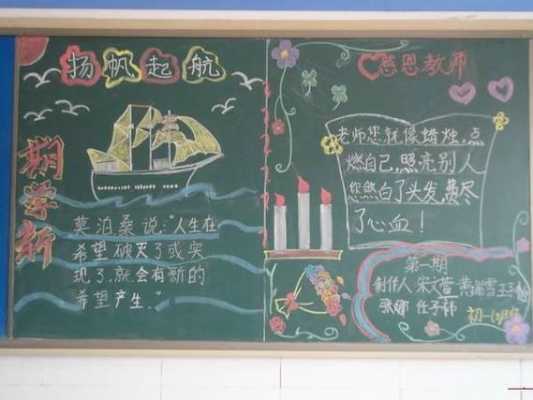 扬帆起航
期学新
莫泊桑说:"人生在
希望破灭了或实
现了,就会有新的
希望产生."
感恩教师
老师您就像蜡烛,点
燃自己.照亮别人
您熬白了头发,熬尽
了心血!
第一期
制作人
初一